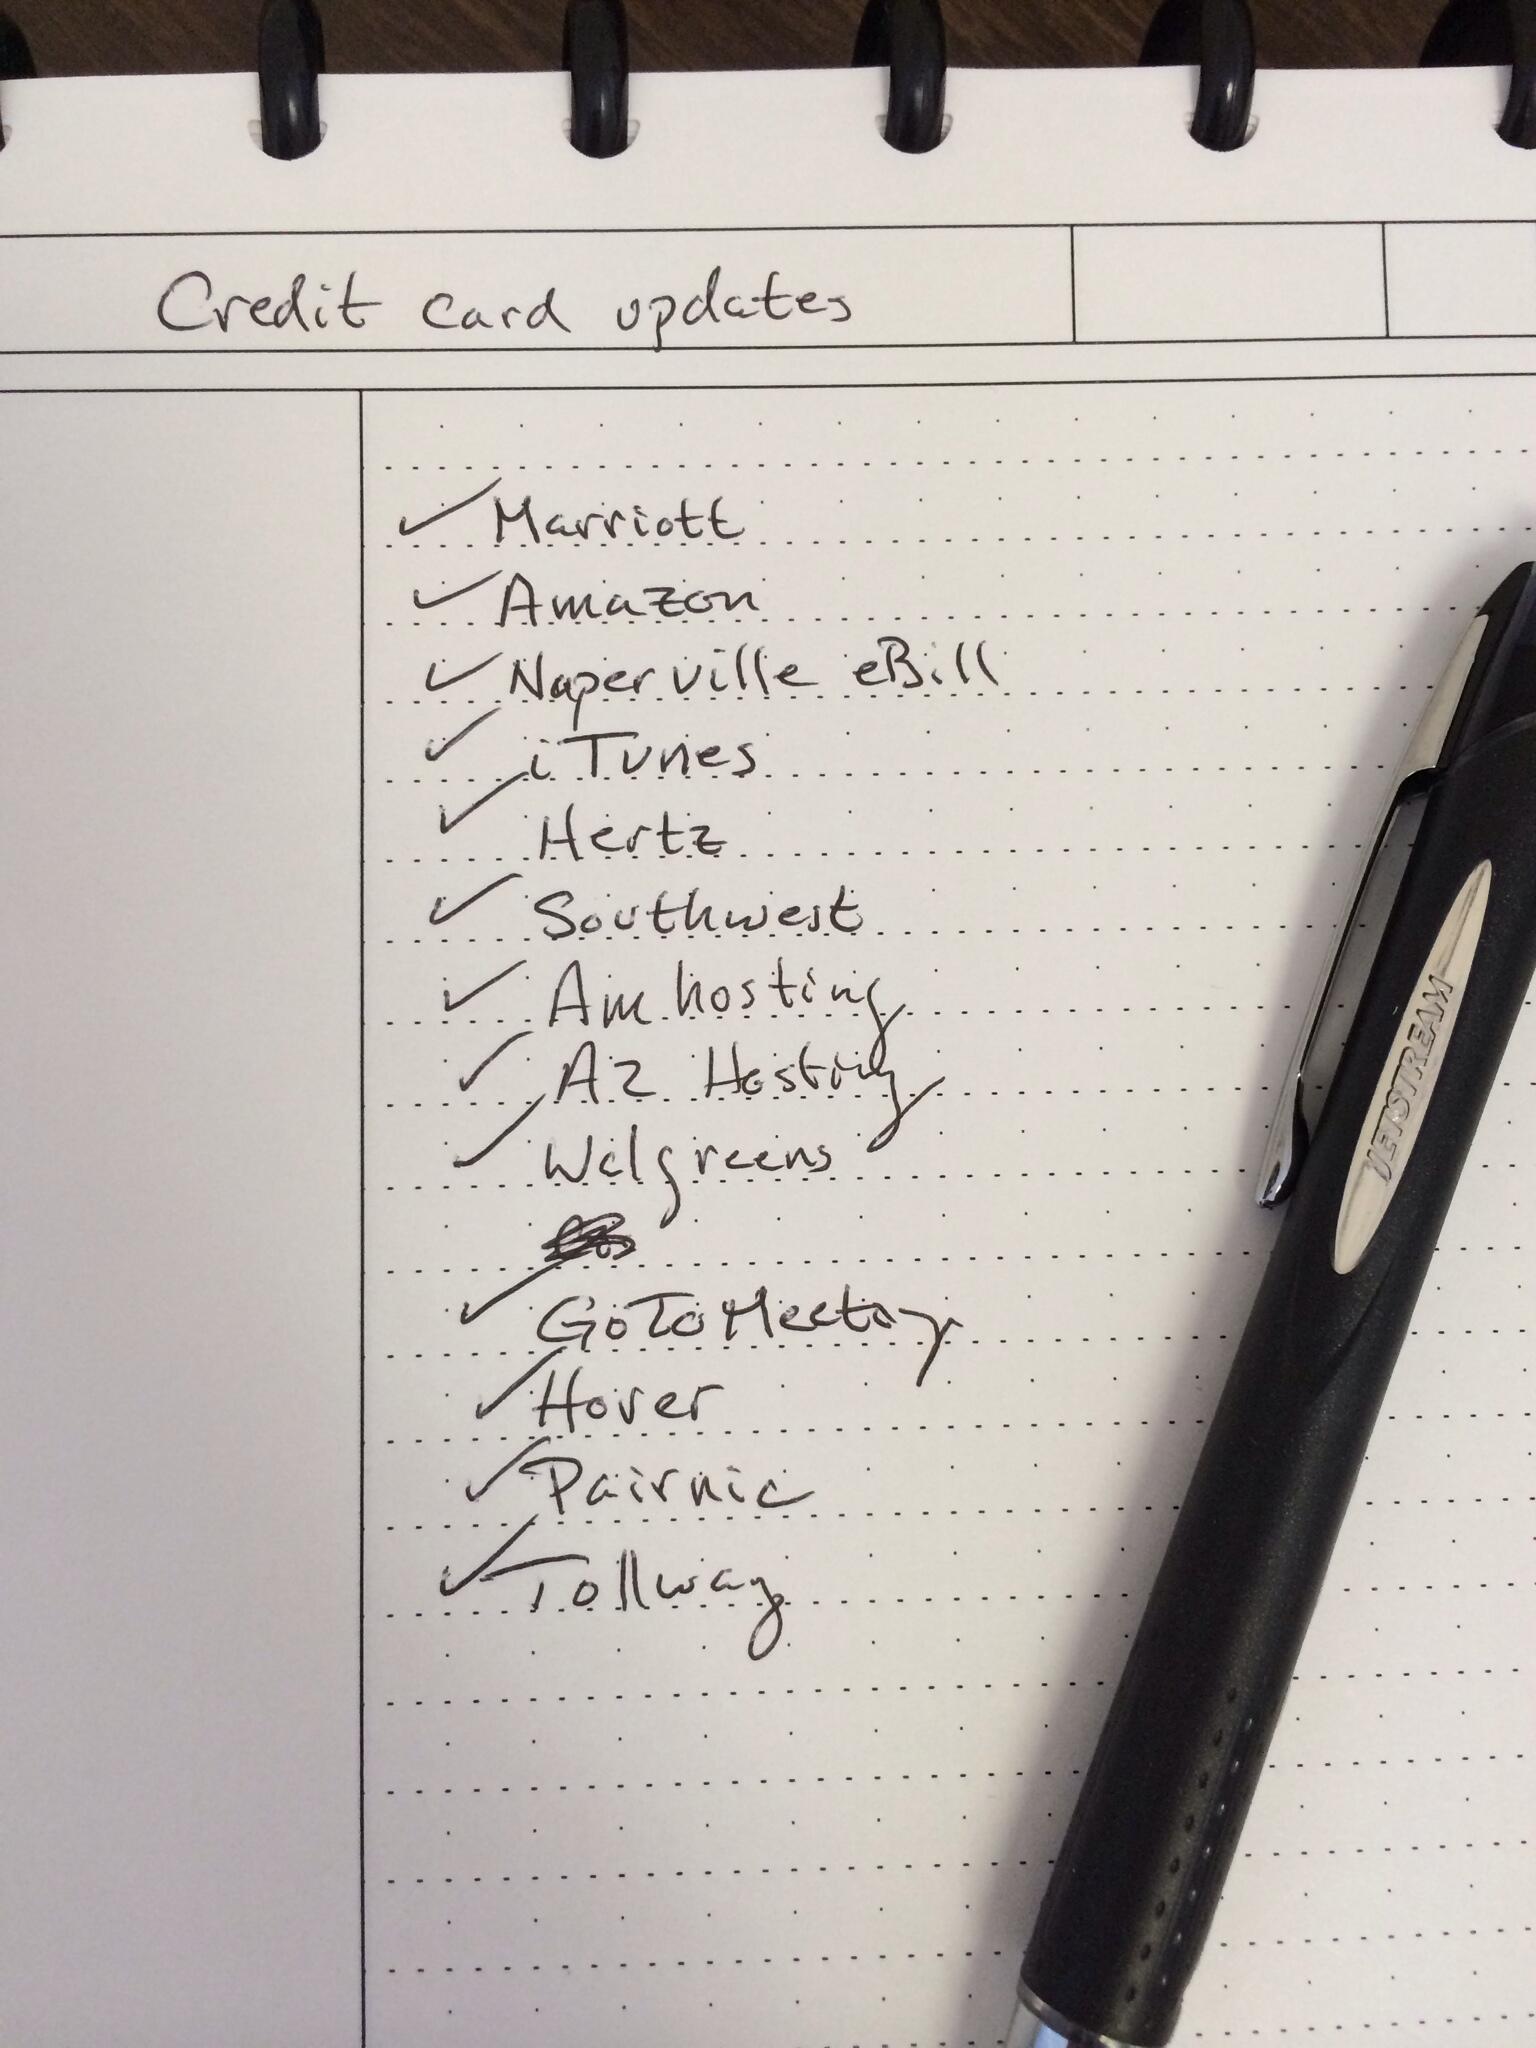 Credit card updates
Marriott
Amazon
Naperville eBill
iTunes
Hertz
Southwest
Am hosting
A2 Hosting
Walgreens
GoToMeeting
Hover
Pairnic
Tollway
JETSTREAM